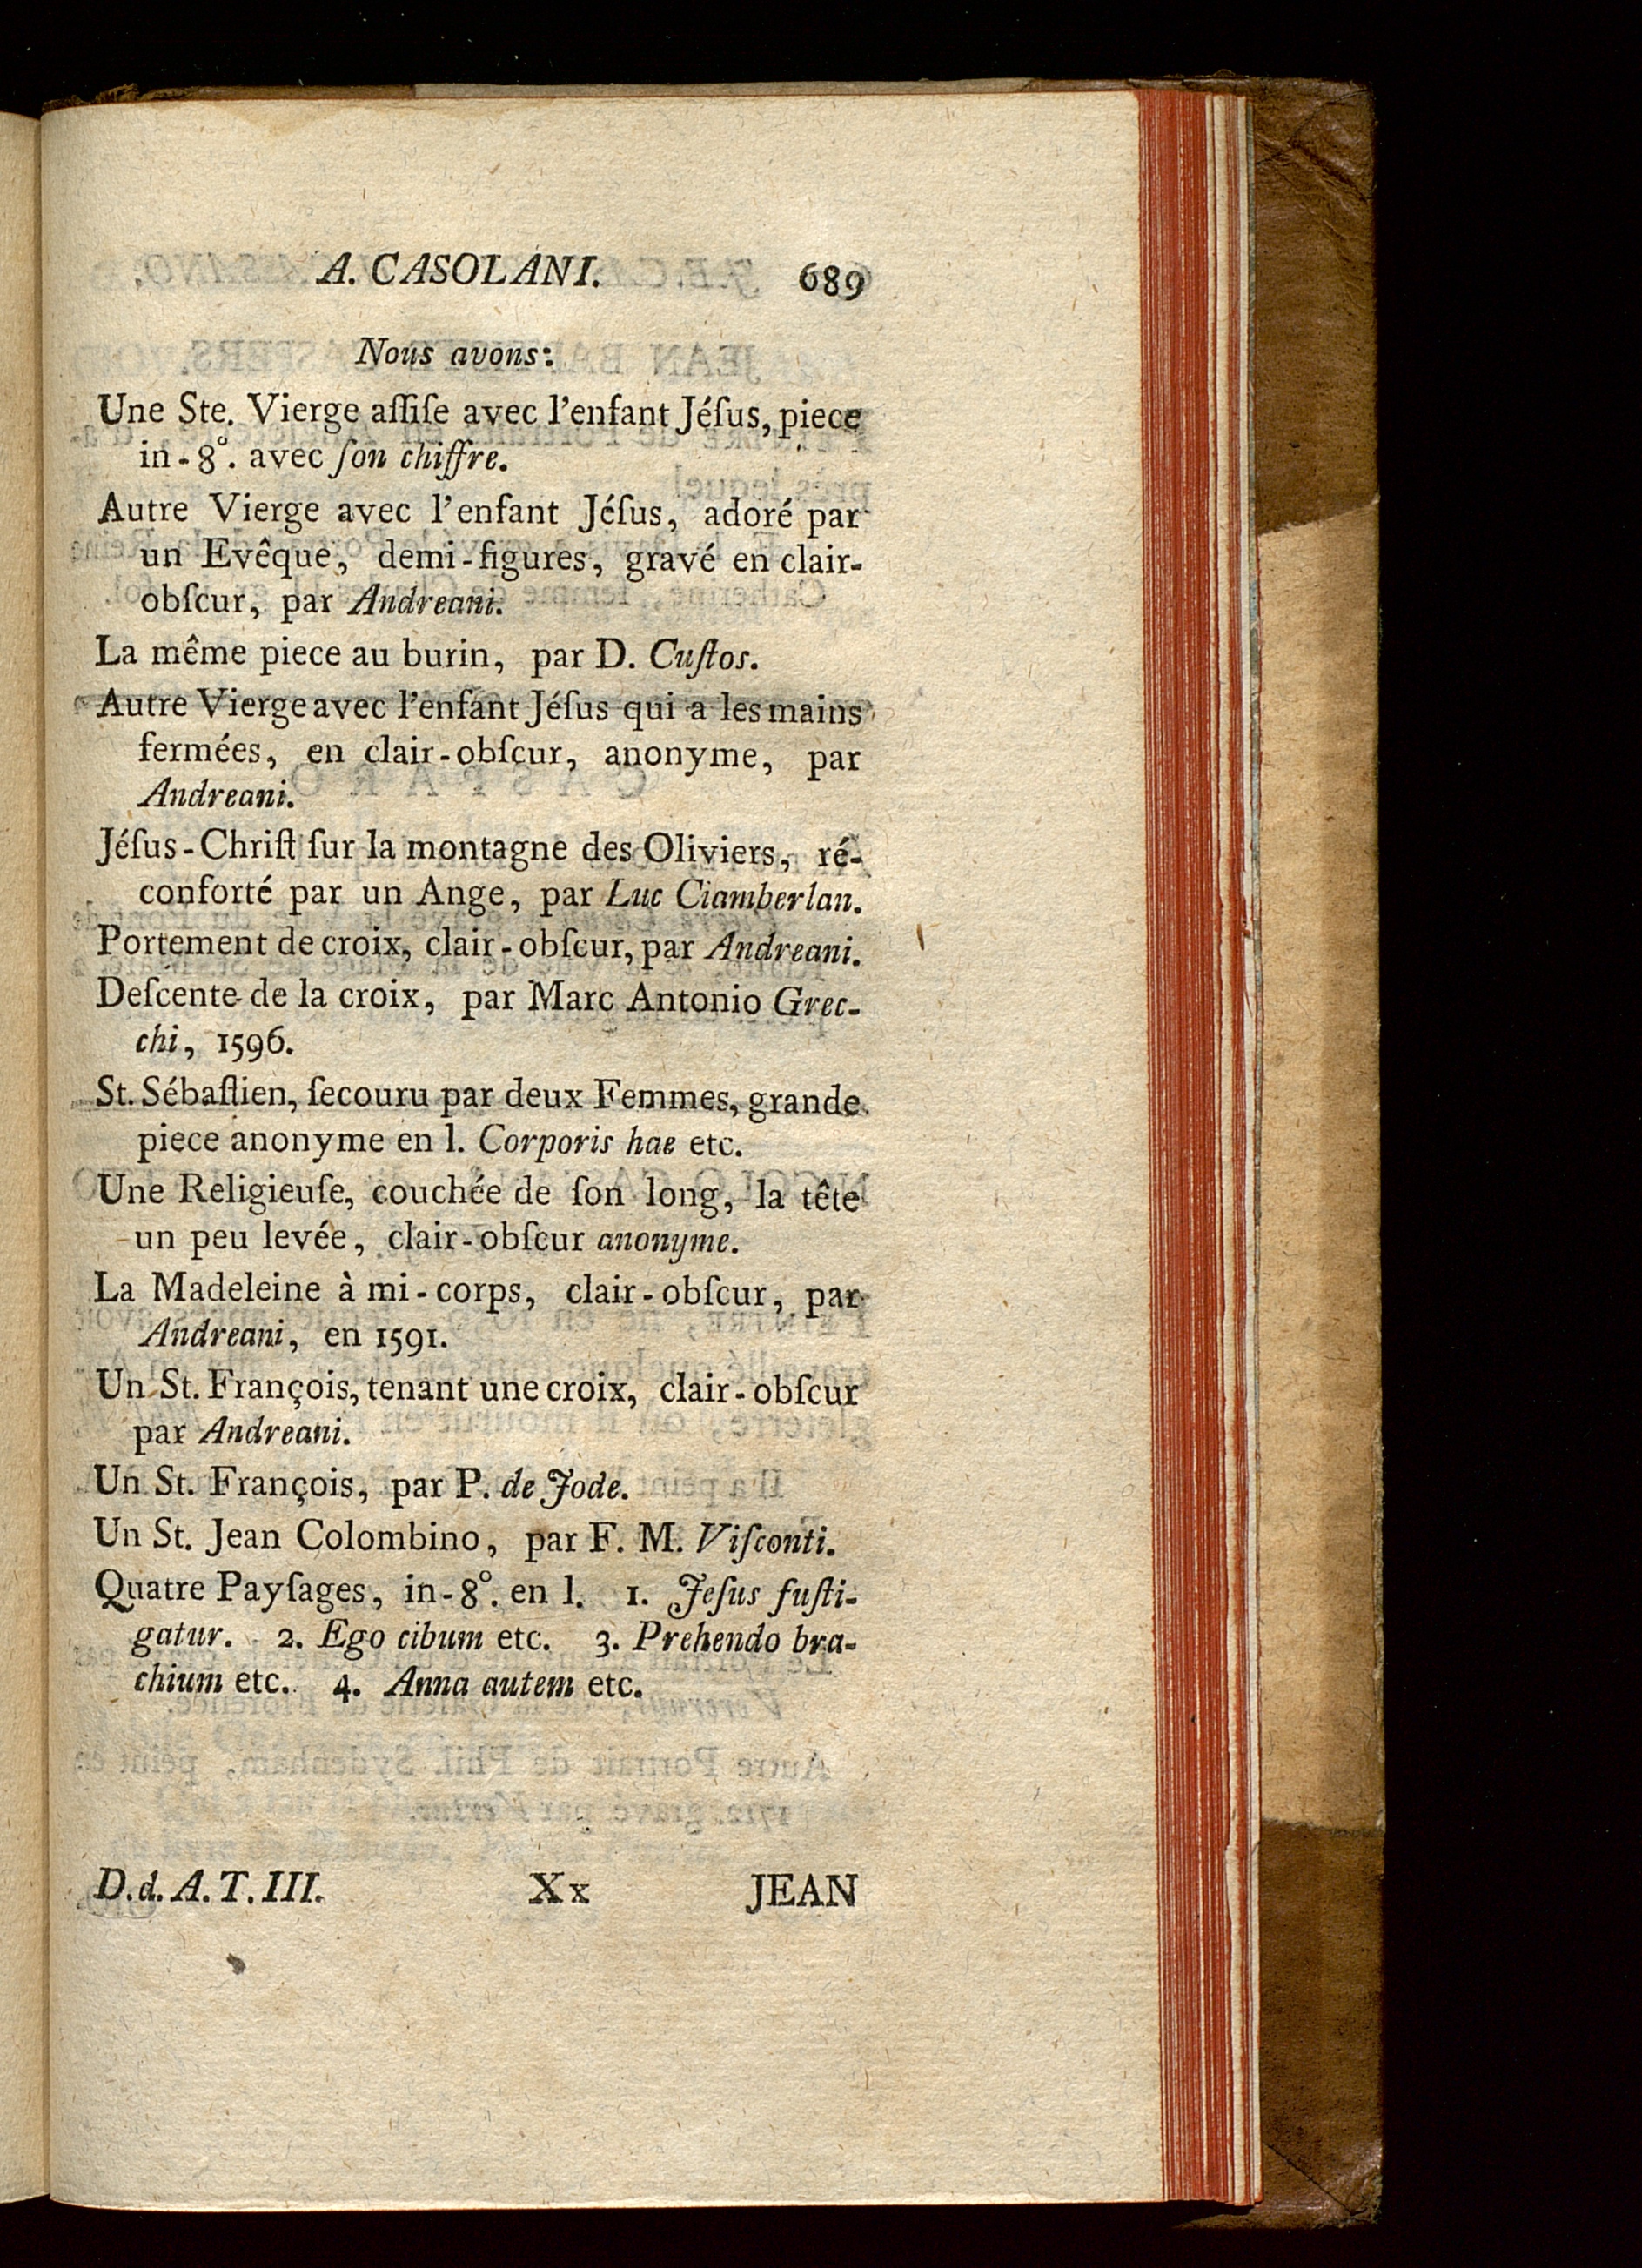 A. CASOLANI. 689
Nous avons:
Une Ste. Vierge aſſiſe avec l'enfant Jéſus, piece
in-8°. avec ſon chiffre.
Autre Vierge avec l'enfant Jéſus, adoré par
un Evêque, demi-figures, gravé en clair-
obſcur, par Andreani.
La même piece au burin, par D. Cuſtos.
Autre Vierge avec l'enfant Jéſus qui a les mains
fermées, en clair-obſcur, anonyme, par
Andreani.
Jéſus-Chriſt ſur la montagne des Oliviers, ré-
conforté par un Ange, par Luc Ciamberlan.
Portement de croix, clair-obſcur, par Andreani.
Deſcente de la croix, par Marc Antonio Grec-
chi, 1596.
St. Sébaſtien, ſecouru par deux Femmes, grande
piece anonyme en l. Corporis hae etc.
Une Religieuſe, couchée de ſon long, la tête
un peu levée, clair-obſcur anonyme.
La Madeleine à mi-corps, clair-obſcur, par
Andreani, en 1591.
Un St. François, tenant une croix, clair-obſcur
par Andreani.
Un St. François, par P. de Jode.
Un St. Jean Colombino, par F. M. Viſconti.
Quatre Payſages, in-8°. en l. 1. Jeſus fuſti-
gatur. 2. Ego cibum etc. 3. Prehendo bra-
chium etc. 4. Anna autem etc.
D. d. A. T. III. Xx JEAN